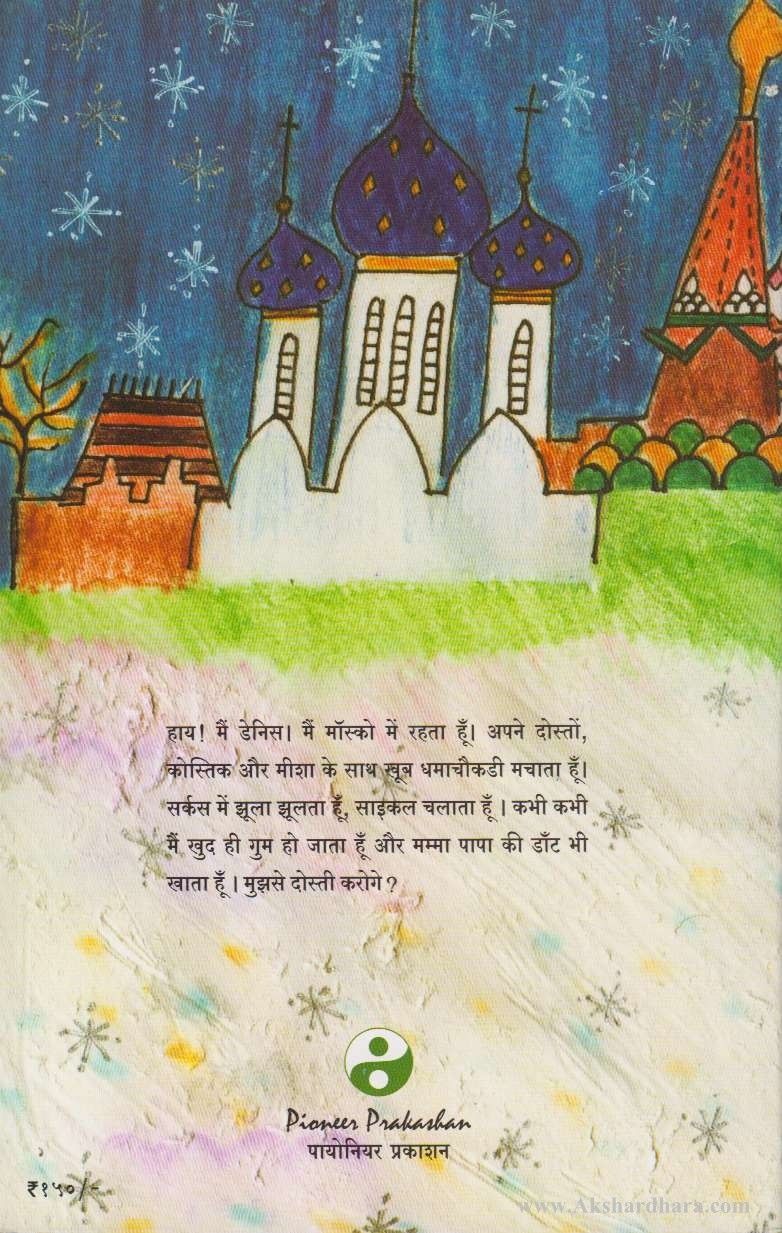 हाय! मैं डेनिस। मैं मॉस्को में रहता हूँ। अपने दोस्तों,
कोस्तिक और मीशा के साथ खूब धमाचौकडी मचाता हूँ।
सर्कस में झूला झूलता हूँ, साइकल चलाता हूँ । कभी कभी
मैं खुद ही गुम हो जाता हूँ और मम्मा पापा की डाँट भी
खाता हूँ । मुझसे दोस्ती करोगे ?
Pioneer Prakashan
पायोनियर प्रकाशन
₹१५०/-
www.Akshardhara.com